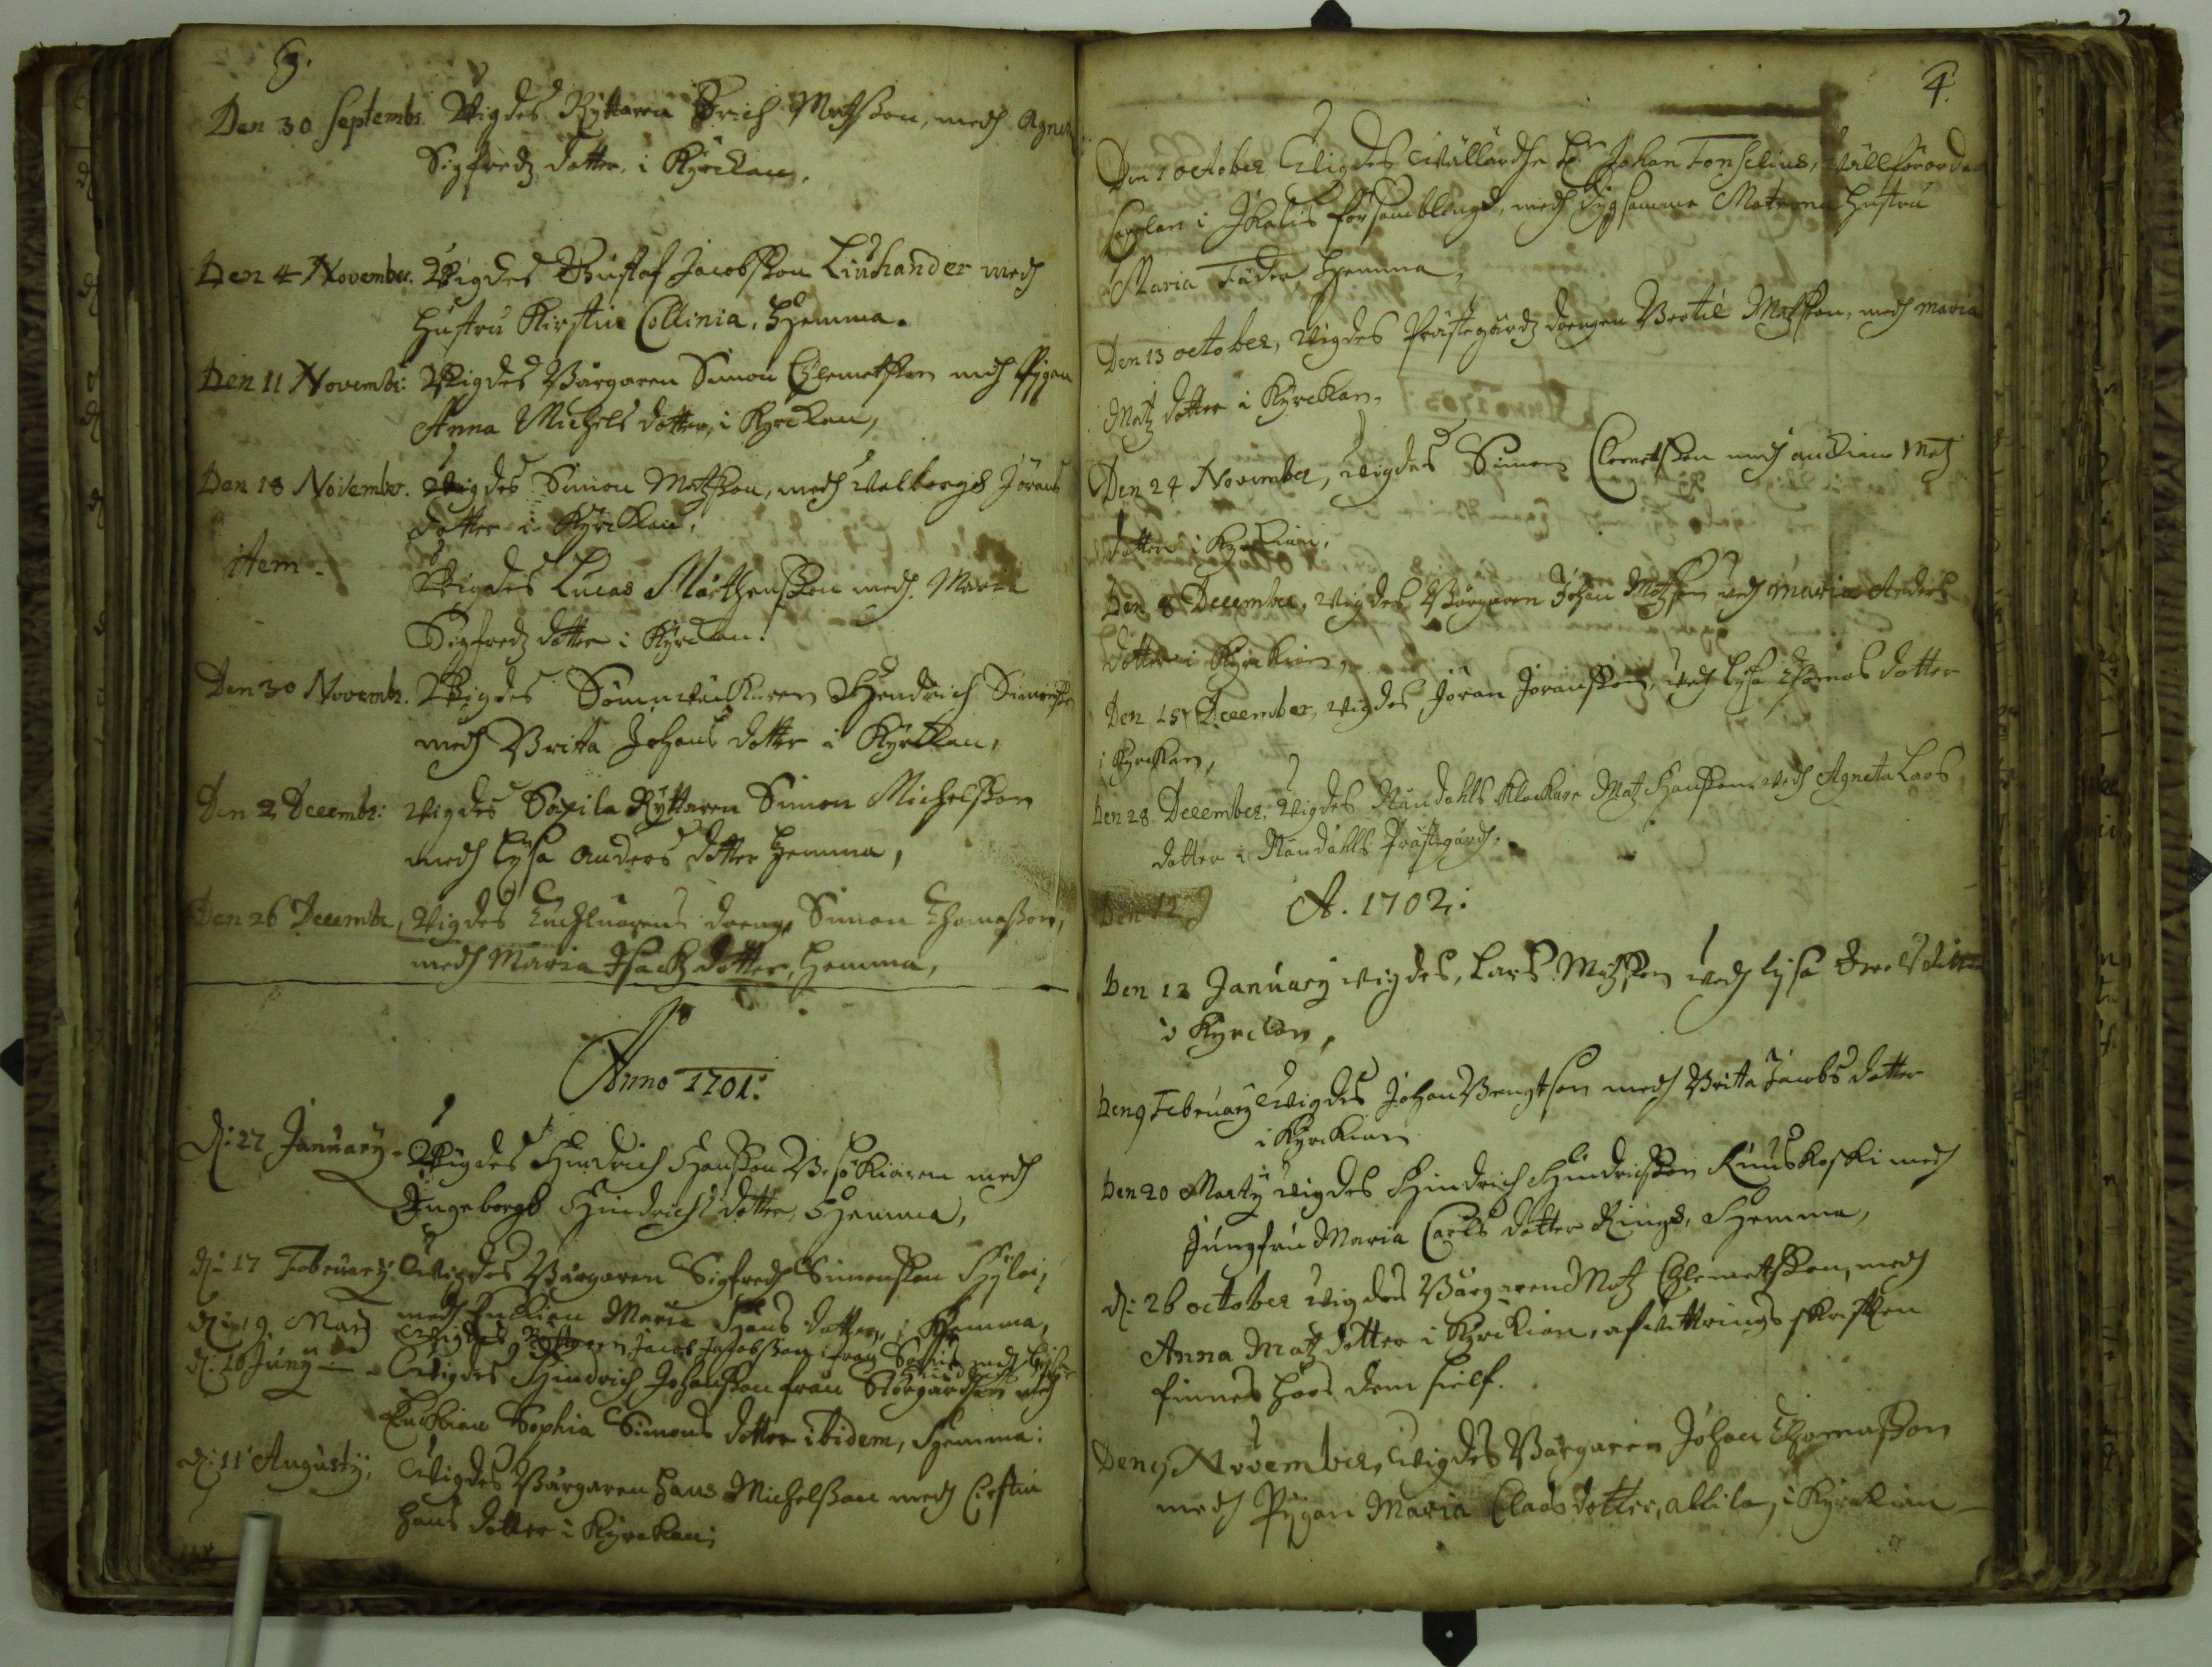 3.
Den 30 Septembr. Wigdes Ryttaren Erich Matsson, medh Agneta
Sigfredz dotter, i Kyrckan,
Den 4 November. Wigdes Gustaf Jacobsson Liuhander medh
Hustru Kirstin Collinia, Hemma.
Den 11 Novembr: Wigdes Borgaren Simon Clemetsson medh Pigan
Anna Michels dotter, i Kyrckan,
Den 18 November. Wigdes Simon Matsson, medh Walborgh Jörans
dotter i Kyrckan.
item - Wigdes Lucas Mårthensson medh Maria
Sigfredz dotter i Kyrckan.
Den 30 Novembr. Wigdes Hendrich Simonsson
medh Britta Johans dotter i Kyrckan,
Den 2 Decembr: Wigdes Ryttaren Simon Michelsson
medh Lysa Anders dotter hemma,
Den 26 Decembr, Wigdes dreng Simon Thomasson,
medh Maria Isacks dotter, hemma,
Anno 1701.
d: 27 January - Wigdes Hindrich Hansson medh
Ingeborgh Hindrichs dotter, Hemma,
d: 17 February Wigdes Borgaren Sigfredh Simonsson
medh Enkian Maria Hans dotter, i Hemma,
d: 19 Marty Wigdes Jacob Jacobsson ifrån medh
d: 16 Juny - Wigdes Hindrich Johansson från medh
Enkian Sophia Simons dotter ibidem, Hemma:
d: 11 Augusty, Wigdes Borgaren Hans Michelsson medh Cirstin
Hans dotter i Kyrckan;
4.
Den 1 october Wigdes Wällärde Hr Johan Fonselius, Wällförordnad
Caplan i Församblingh, medh dygsamme Matrona Hustru
Maria Hemma,
Den 13 october, Wigdes Prästegårdz drengen Bertil Matsson, medh Maria
Matz dotter i Kyrckan.
Den 24 November, Wigdes Simon Clemetsson medh änkian Matz
dotter i Kyrckian,
Den 8 December, Wigdes Borgaren Johan Matsson medh Maria Anders
dotter i Kyrckian,
Den 15 December, Wigdes Jöran Jöransson, medh Lysa Thomas dotter
i Kyrckan,
Den 28 December, Wigdes Klockare Matz Hansson medh Agneta Lars
dotter i Prästegård.
Den 12 A. 1702:
Den 12 January Wigdes, Lars Matsson medh Lysa dotter
i Kyrckan,
Den 9 February Wigdes Johan Bengtson medh Britta Jacobs dotter
i Kyrckian
Den 20 Marty Wigdes Hindrich Hindrichsson Kuuskoski medh
Jungfru Maria Carls dotter Rings, Hemma,
d: 26 october Wigdes Borgaren Matz Clemetsson, medh
Anna Matz dotter i Kyrckian, afwittrings skrifften
finnes hoos dem sielf.
Den 9 November, Wigdes Borgaren Johan Thomasson
medh Pygan Maria Claas dotter, Allila, i Kyrckian